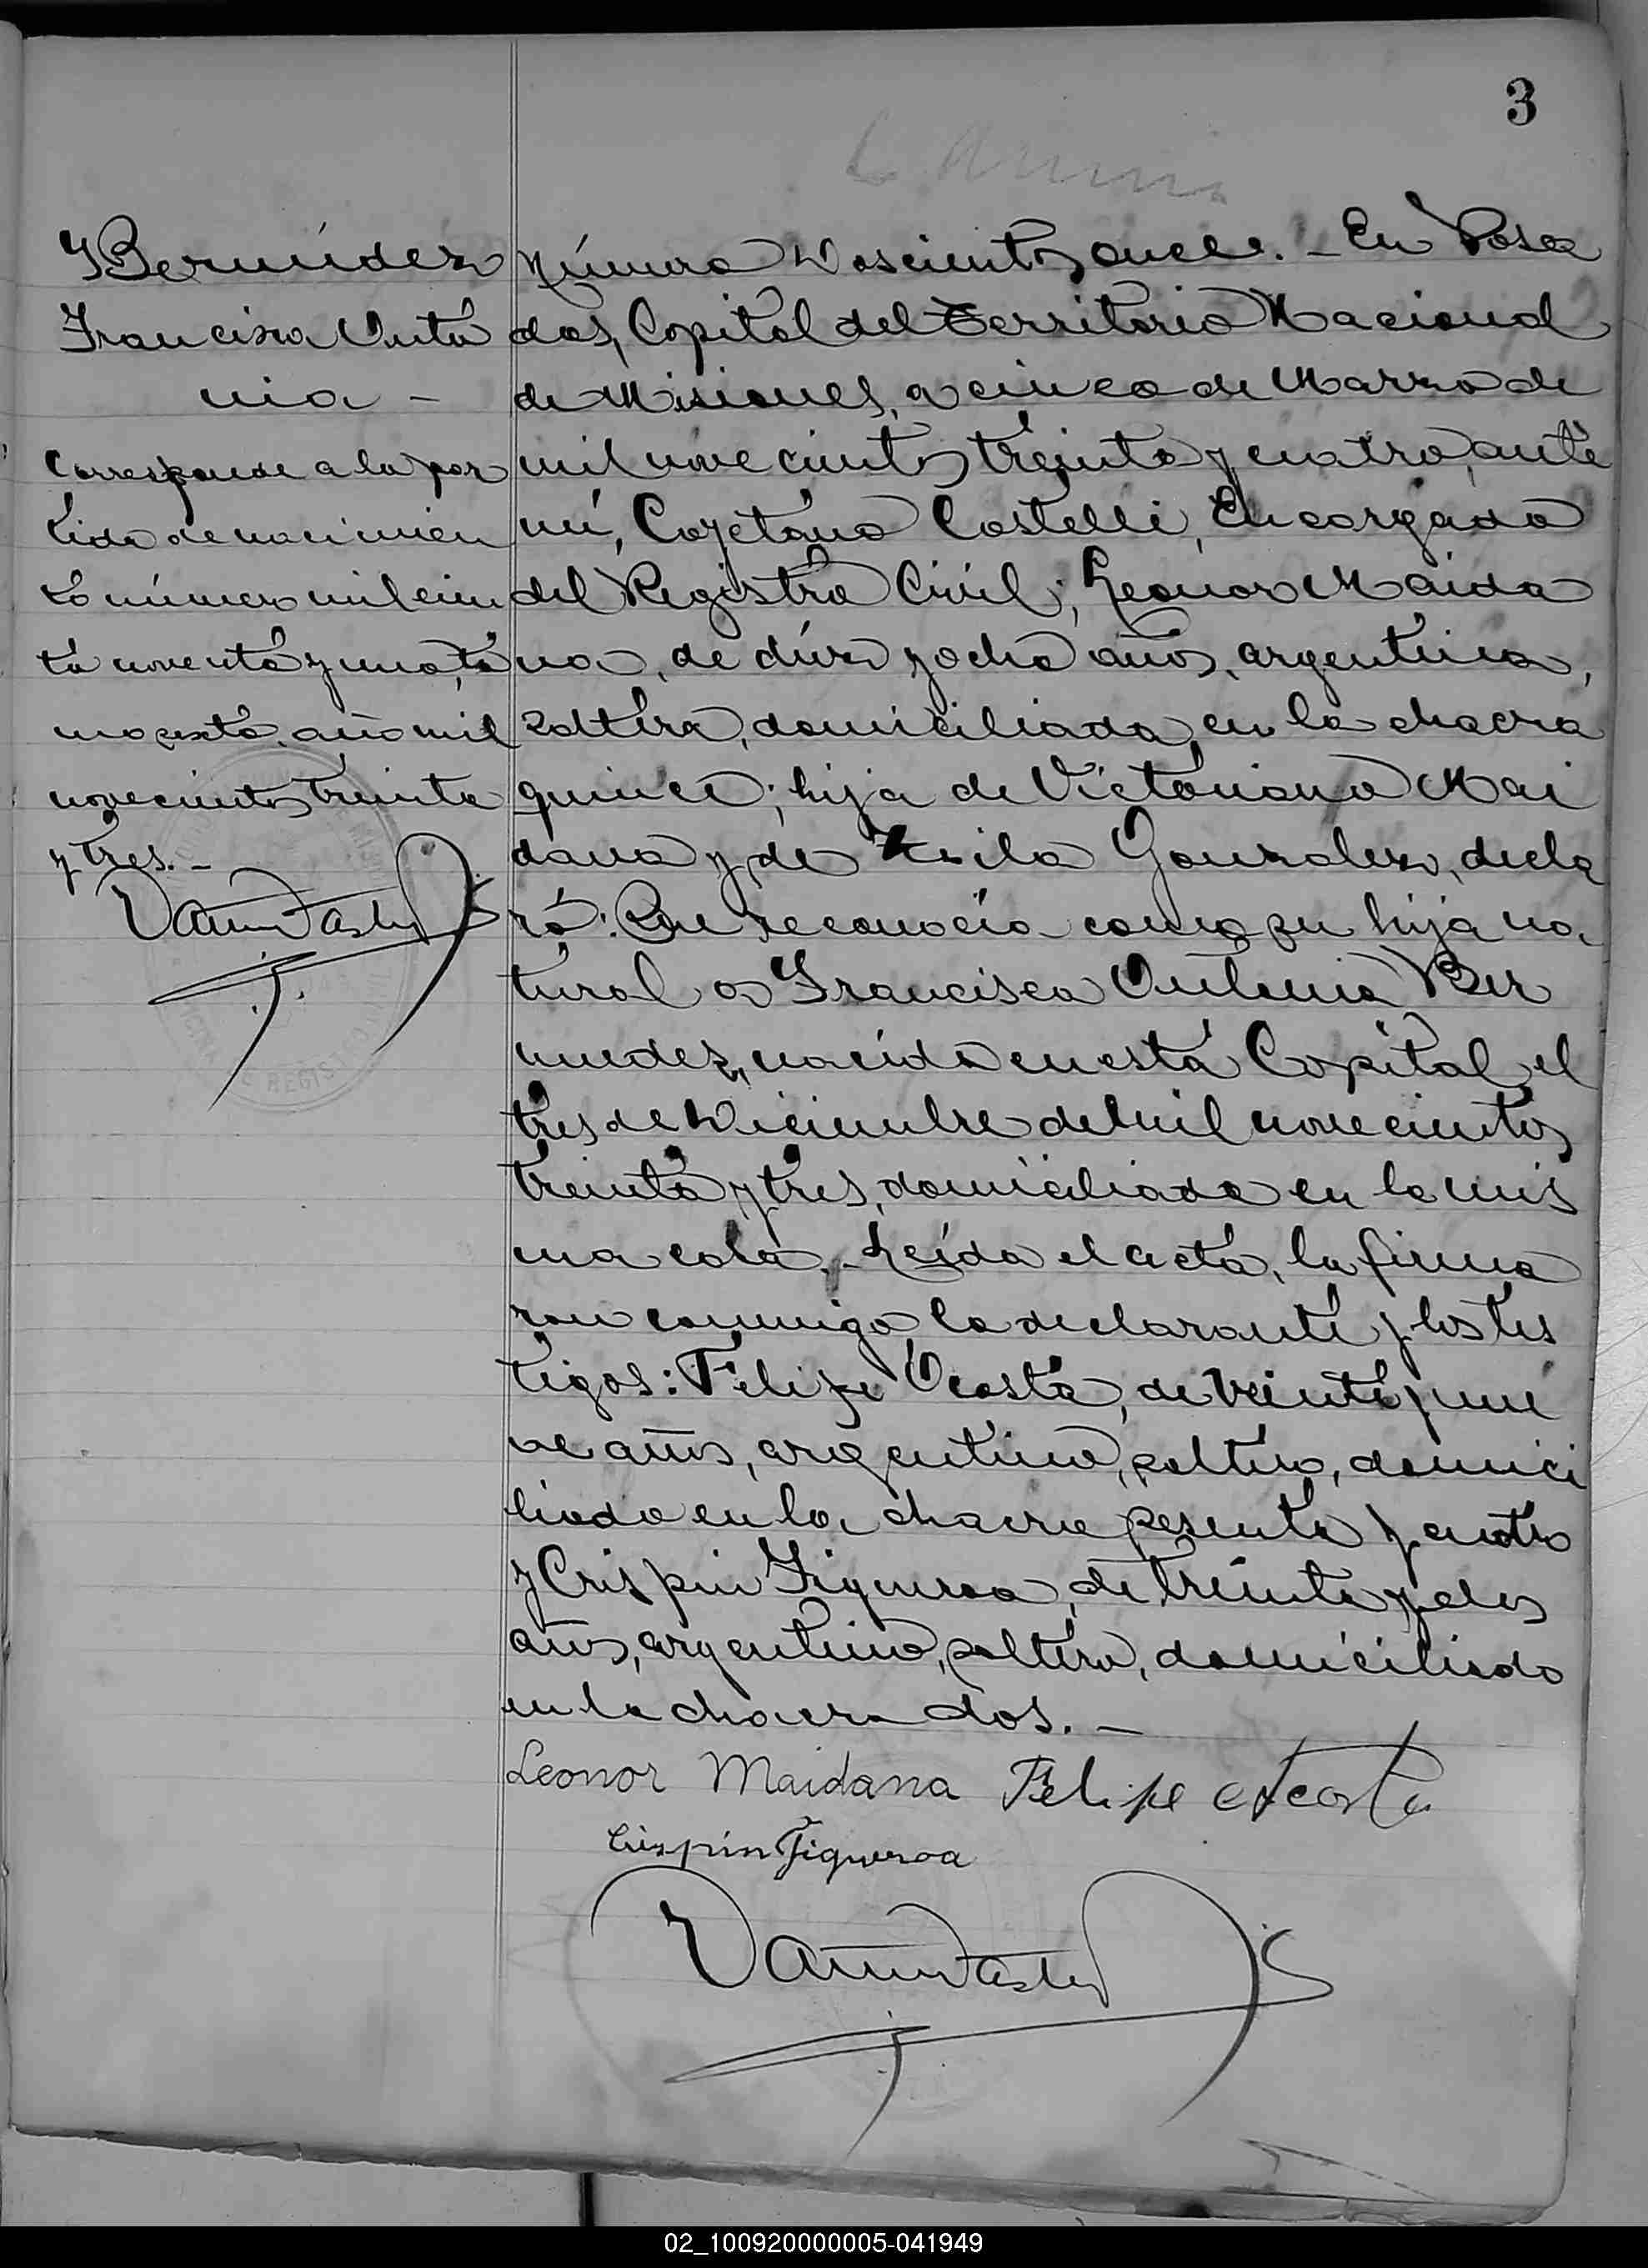 3
Bermúdez
Francisca Anto
nia -
Corresponde a la par
tida de nacimien
to número mil cien
to noventa y uno, to
mo sexto, año mil
novecientos treinta
y tres. -
Número Doscientos once. - En Posa
das, Capital del Territorio Nacional
de Misiones, a cinco de Marzo de
mil novecientos treinta y cuatro, ante
mí, Cayetano Castelli, Encargado
del Registro Civil; Leonor Maida
na, de diez y ocho años, argentina,
soltera, domiciliada en la chacra
quince; hija de Victoriano Mai
dana y de Gonzalez, decla
ró: Que reconocía como su hija na
tural a Francisca Antonia Ber
mudez, nacida en esta Capital el
tres de Diciembre del mil novecientos
treinta y tres, domiciliada en la mis
ma casa. - Leída el acta, la firma
ron conmigo, la declarante y los tes
tigos: Felipe Acosta, de veinte y nue
ve años, argentino, soltero, domici
liado en la chacra sesenta y cuatro
y Crispin Figueroa, de treinta y dos
años, argentino, soltero, domiciliado
en la chacra dos. -
Leonor Maidana Felipe Acosta
Crispin Figueroa
02_100920000005-041949